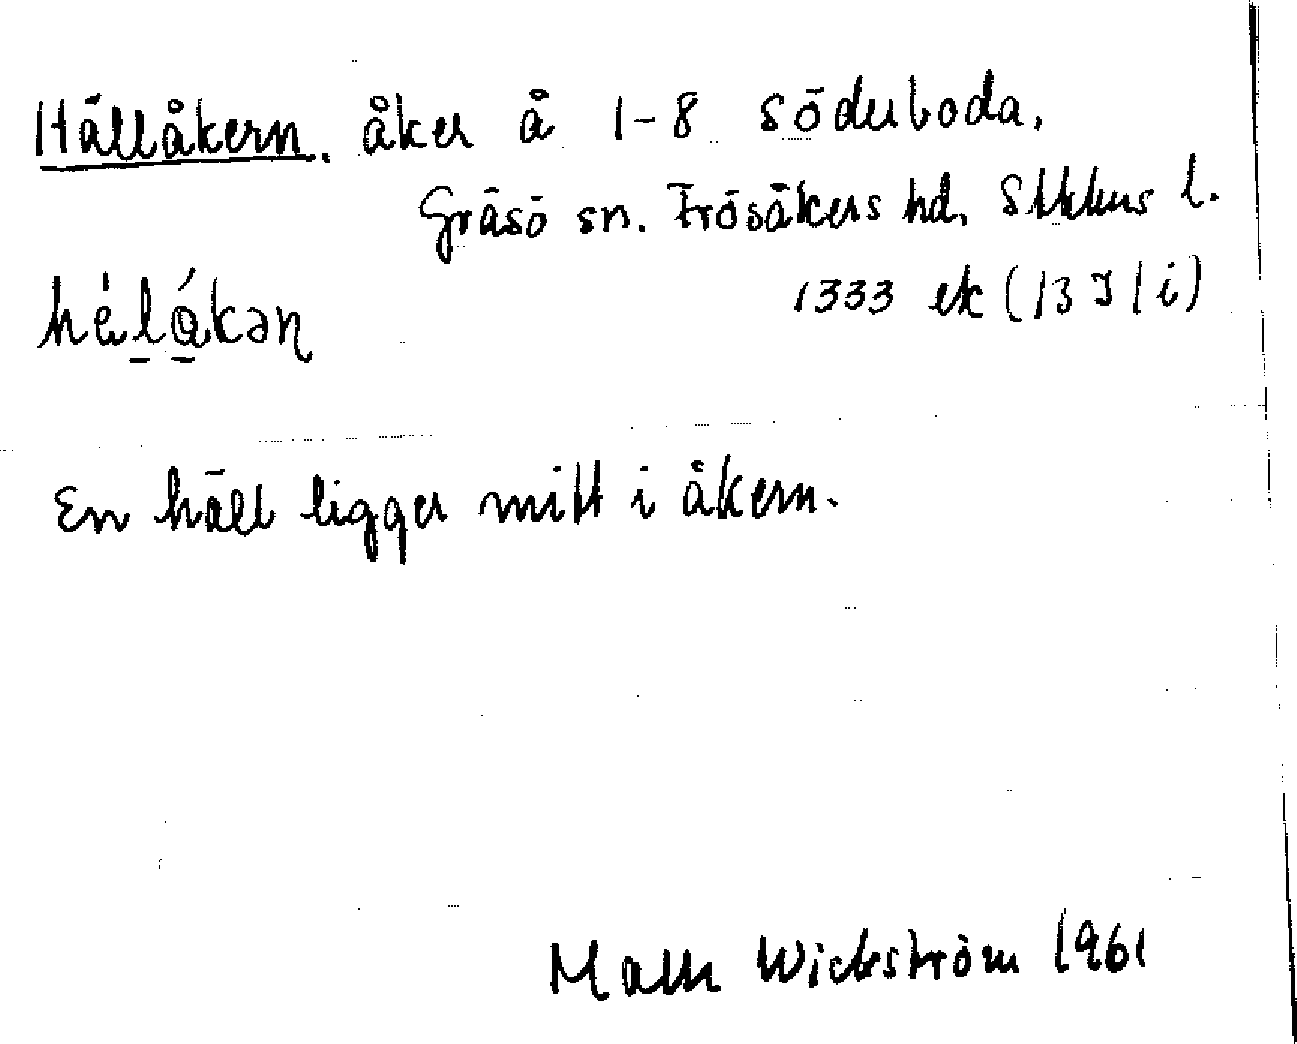 Hällåkern. åker å 1-8 Söderboda,
Gräsö sn. Frösåkers hd. Sthlms l.
hèlákən
1333 ek (13 J 1 i)
En häll ligger mitt i åkern.
Wickström 1961